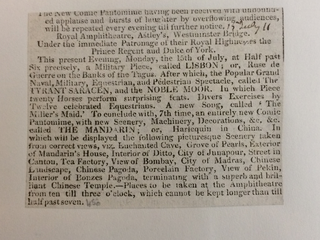 The New Comic Pantomime having been received with unbound-
ed applause and bursts of laughter by overflowing audiences,
will be repeated every evening till further notice.
Royal Amphitheatre, Astley's, Westminster Bridge.
Under the immediate Patronage of their Royal Highnesses the
Prince Regent and Duke of York.
This present Evening, Monday, the 15th of July, at Half past
Six precisely, a Military Piece, called LISBON; or, Ruse de
Guerre on the Banks of the Tagus. After which, the Popular Grand
Naval, Military, Equestrian, and Pedestrian Spectacle, called The
TYRANT SARACEN, and the NOBLE MOOR. In which Piece
twenty Horses perform surprising feats. Divers Exercises by
Twelve celebrated Equestrians. A New Song, called 'The
Miller's Maid.' To conclude with, 7th time, an entirely new Comic
Pantomime, with new Scenery, Machinery, Decorations, &c. &c.
called THE MANDARIN; or, Harlequin in China. In
which will be displayed the following picturesque Scenery taken
from correct views, viz. Enchanted Cave, Grove of Pearls, Exterior
of Mandarin's House, Interior of Ditto, City of Junapour, Street in
Canton, Tea Factory, View of Bombay, City of Madras, Chinese
Landscape, Chinese Pagoda, Porcelain Factory, View of Pekin,
Interior of Bonzes Pagoda, terminating with a superb and bril-
liant Chinese Temple.—Places to be taken at the Amphitheatre
from ten till three o'clock, which cannot be kept longer than till
half past seven.